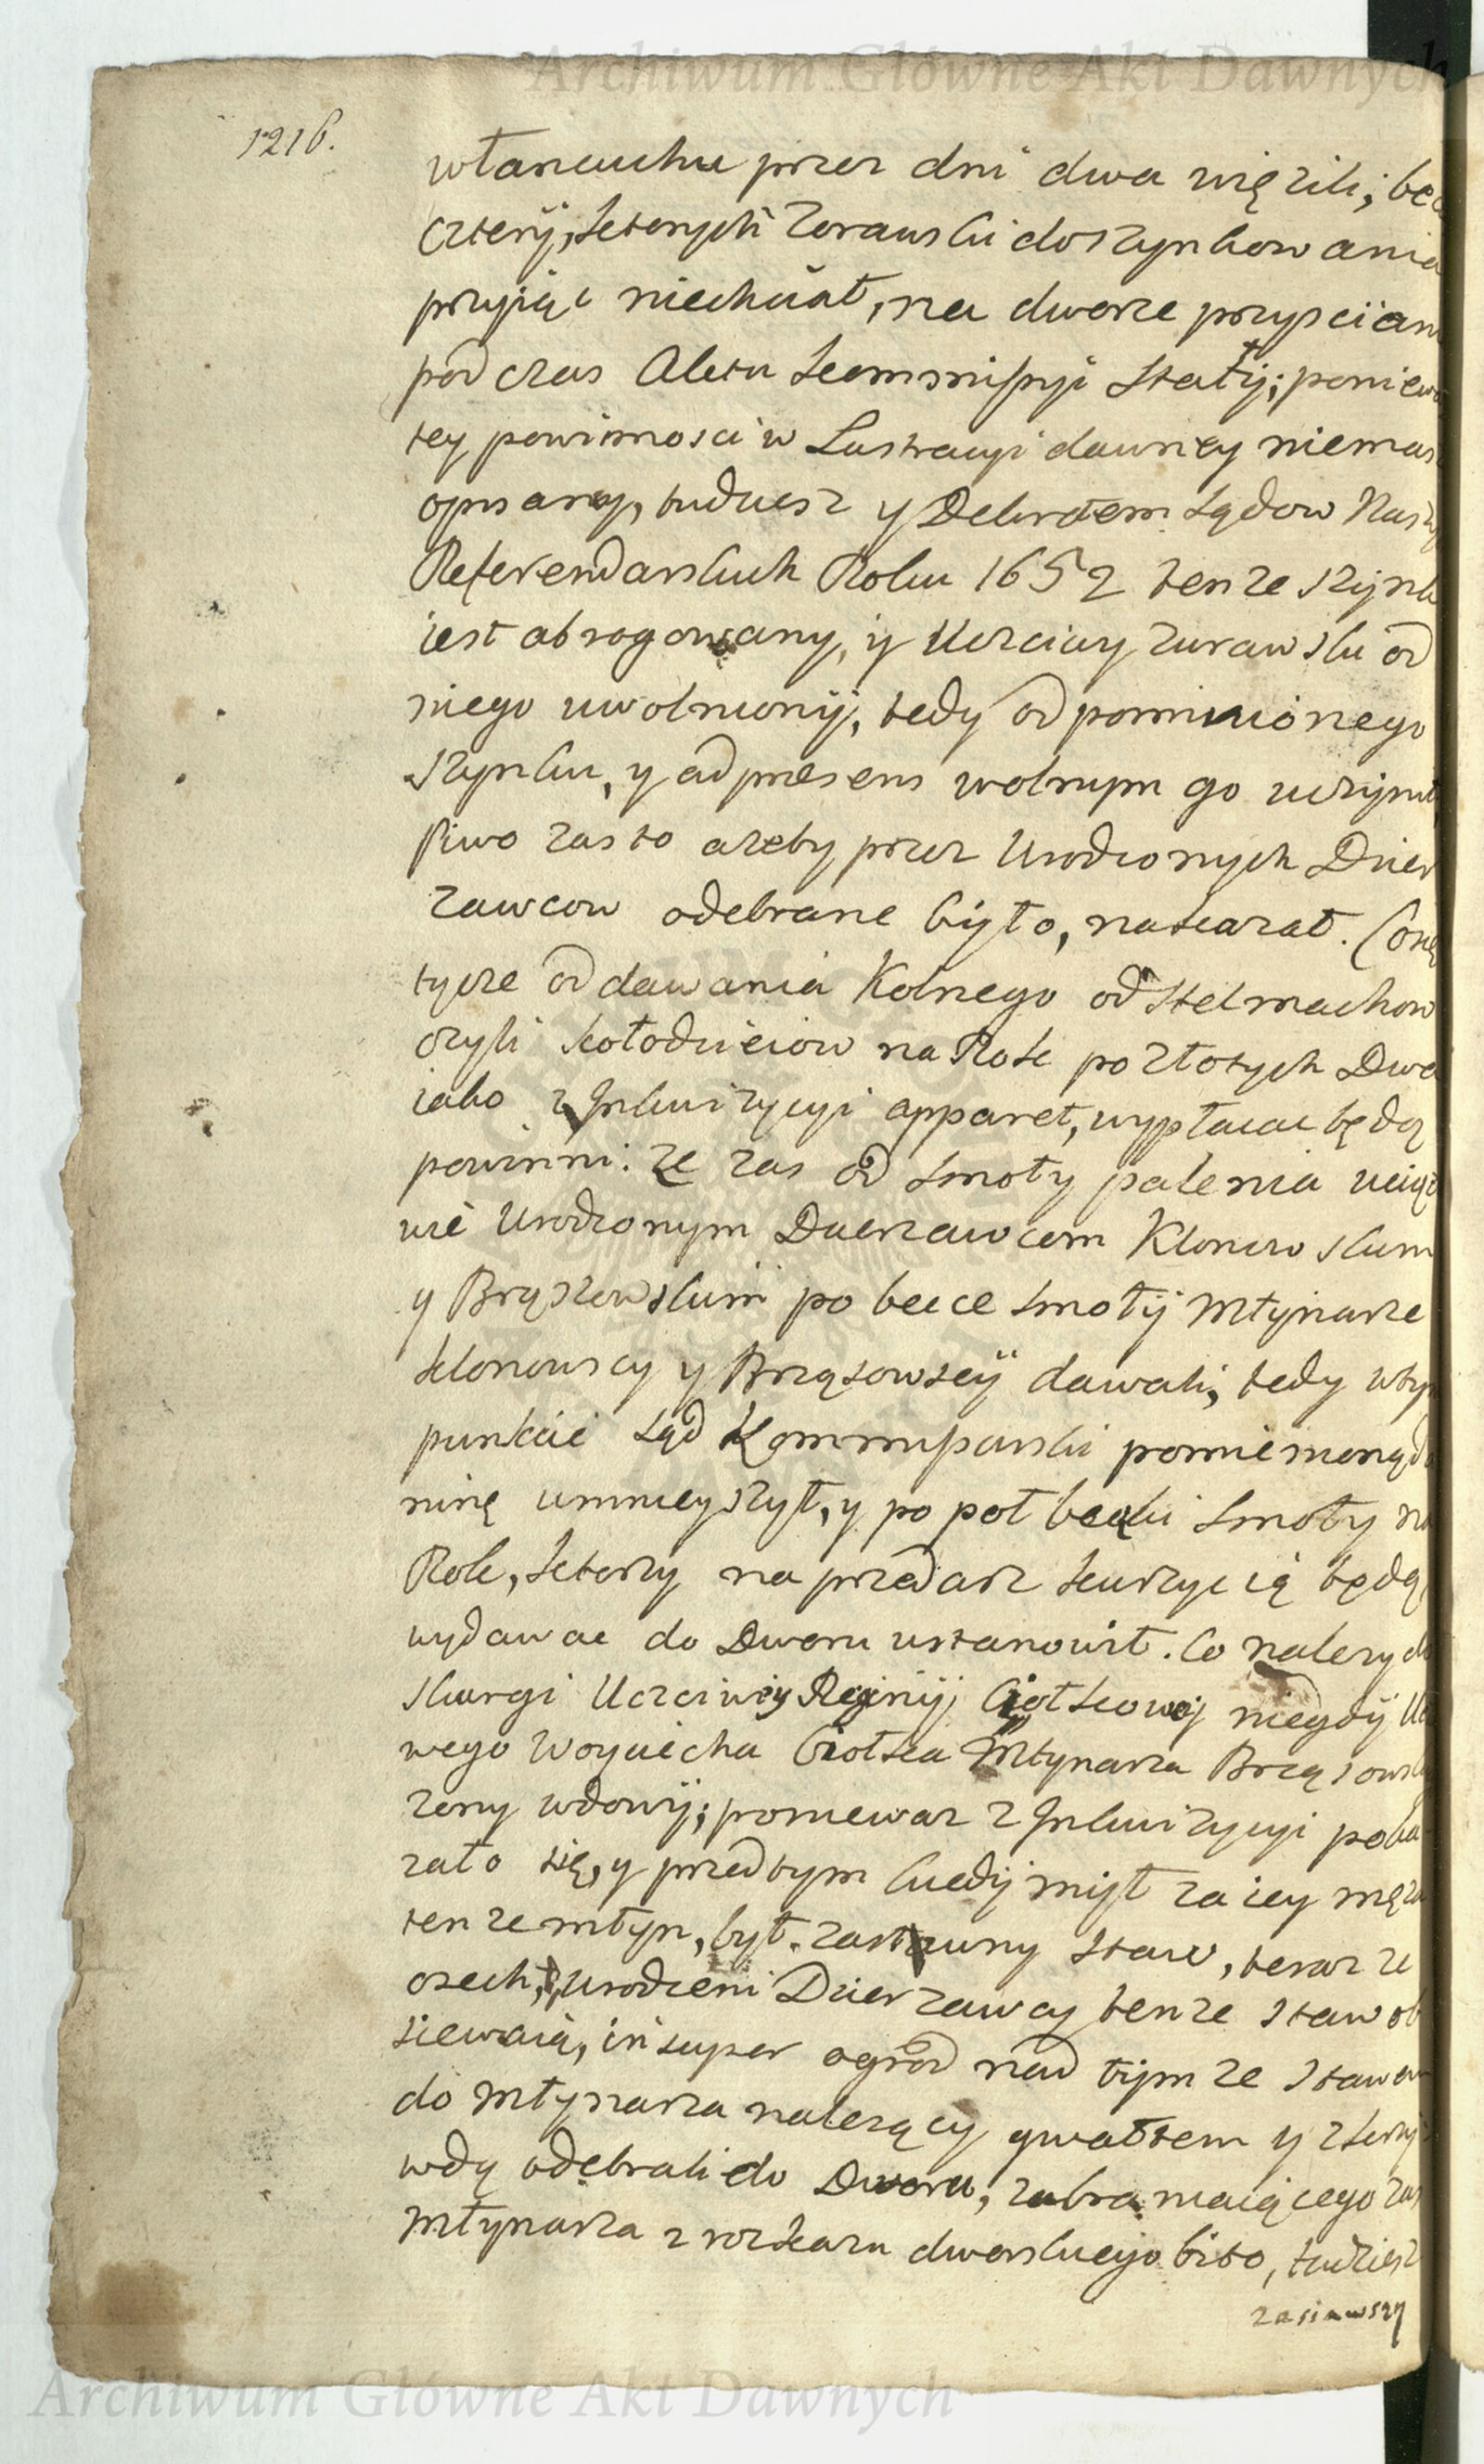 Archiwum Główne Akt Dawnych
1216.
włancuchu przez dni dwa więzili; bec
cztery, ktorych Zorawski do szynkowania
przyiąc niechciał, na dworze przyscian
pod czas Aktu Kommissyi stały; poniewa
tey powinnosci w Lustracyi dawney niemasz
opisaney, tudziesz y Dekretem Sądow Naszy
Referendarskich Roku 1652 tenze szynk
iest abrogowany, y Uczciwy Zurawski od
niego uwolniony, tedy od pominionego
szynku, y ad præsens wolnym go uczynił
Piwo zas to azeby przez Urodzonych Dzier
zawcow odebrane było, nakazał. Co się
tycze oddawania Kolnego od Stelmachow
czyli kołodzieiow na Rok po złotych Dwa
iako z Inkwizycyi apparet, wypłacac będą
powinni. Ze zas od smoły palenia uciąz
wie Urodzonym Dzierzawcom Klonowskim
y Brząszowskim po beczce smoły Młynarze
Klonowscy y Brząsowscy dawali, tedy wtym
punkcie Sąd Kommissarski pomienioną da
ninę umnieyszył, y po poł beczki smoły na
Rok, ktorzy na przedasz kurzyc ią będą
wydawac do Dworu ustanowił. Co nalezy do
skargi Uczciwey Reginy Ciołkowey niegdy Ucz
wego Woyciecha Ciołka Młynarza Brząsowsk
zony wdowy; poniewaz z Inkwizycyi poka
zało się, y przedtym kiedy mył za iey męza
tenze młyn, był zastawny staw, teraz ze
osechł, Urodzeni Dzierzawcy tenze staw ob
siewaią, insuper ogrod nad tymze stawem
do Młynarza nalezący gwałtem y zkrzy
wdą odebrali do Dworu, zabraniaiącego zas
Młynarza z roskazu dworskiego bito, tudziesz
zasiawszy
Archiwum Główne Akt Dawnych